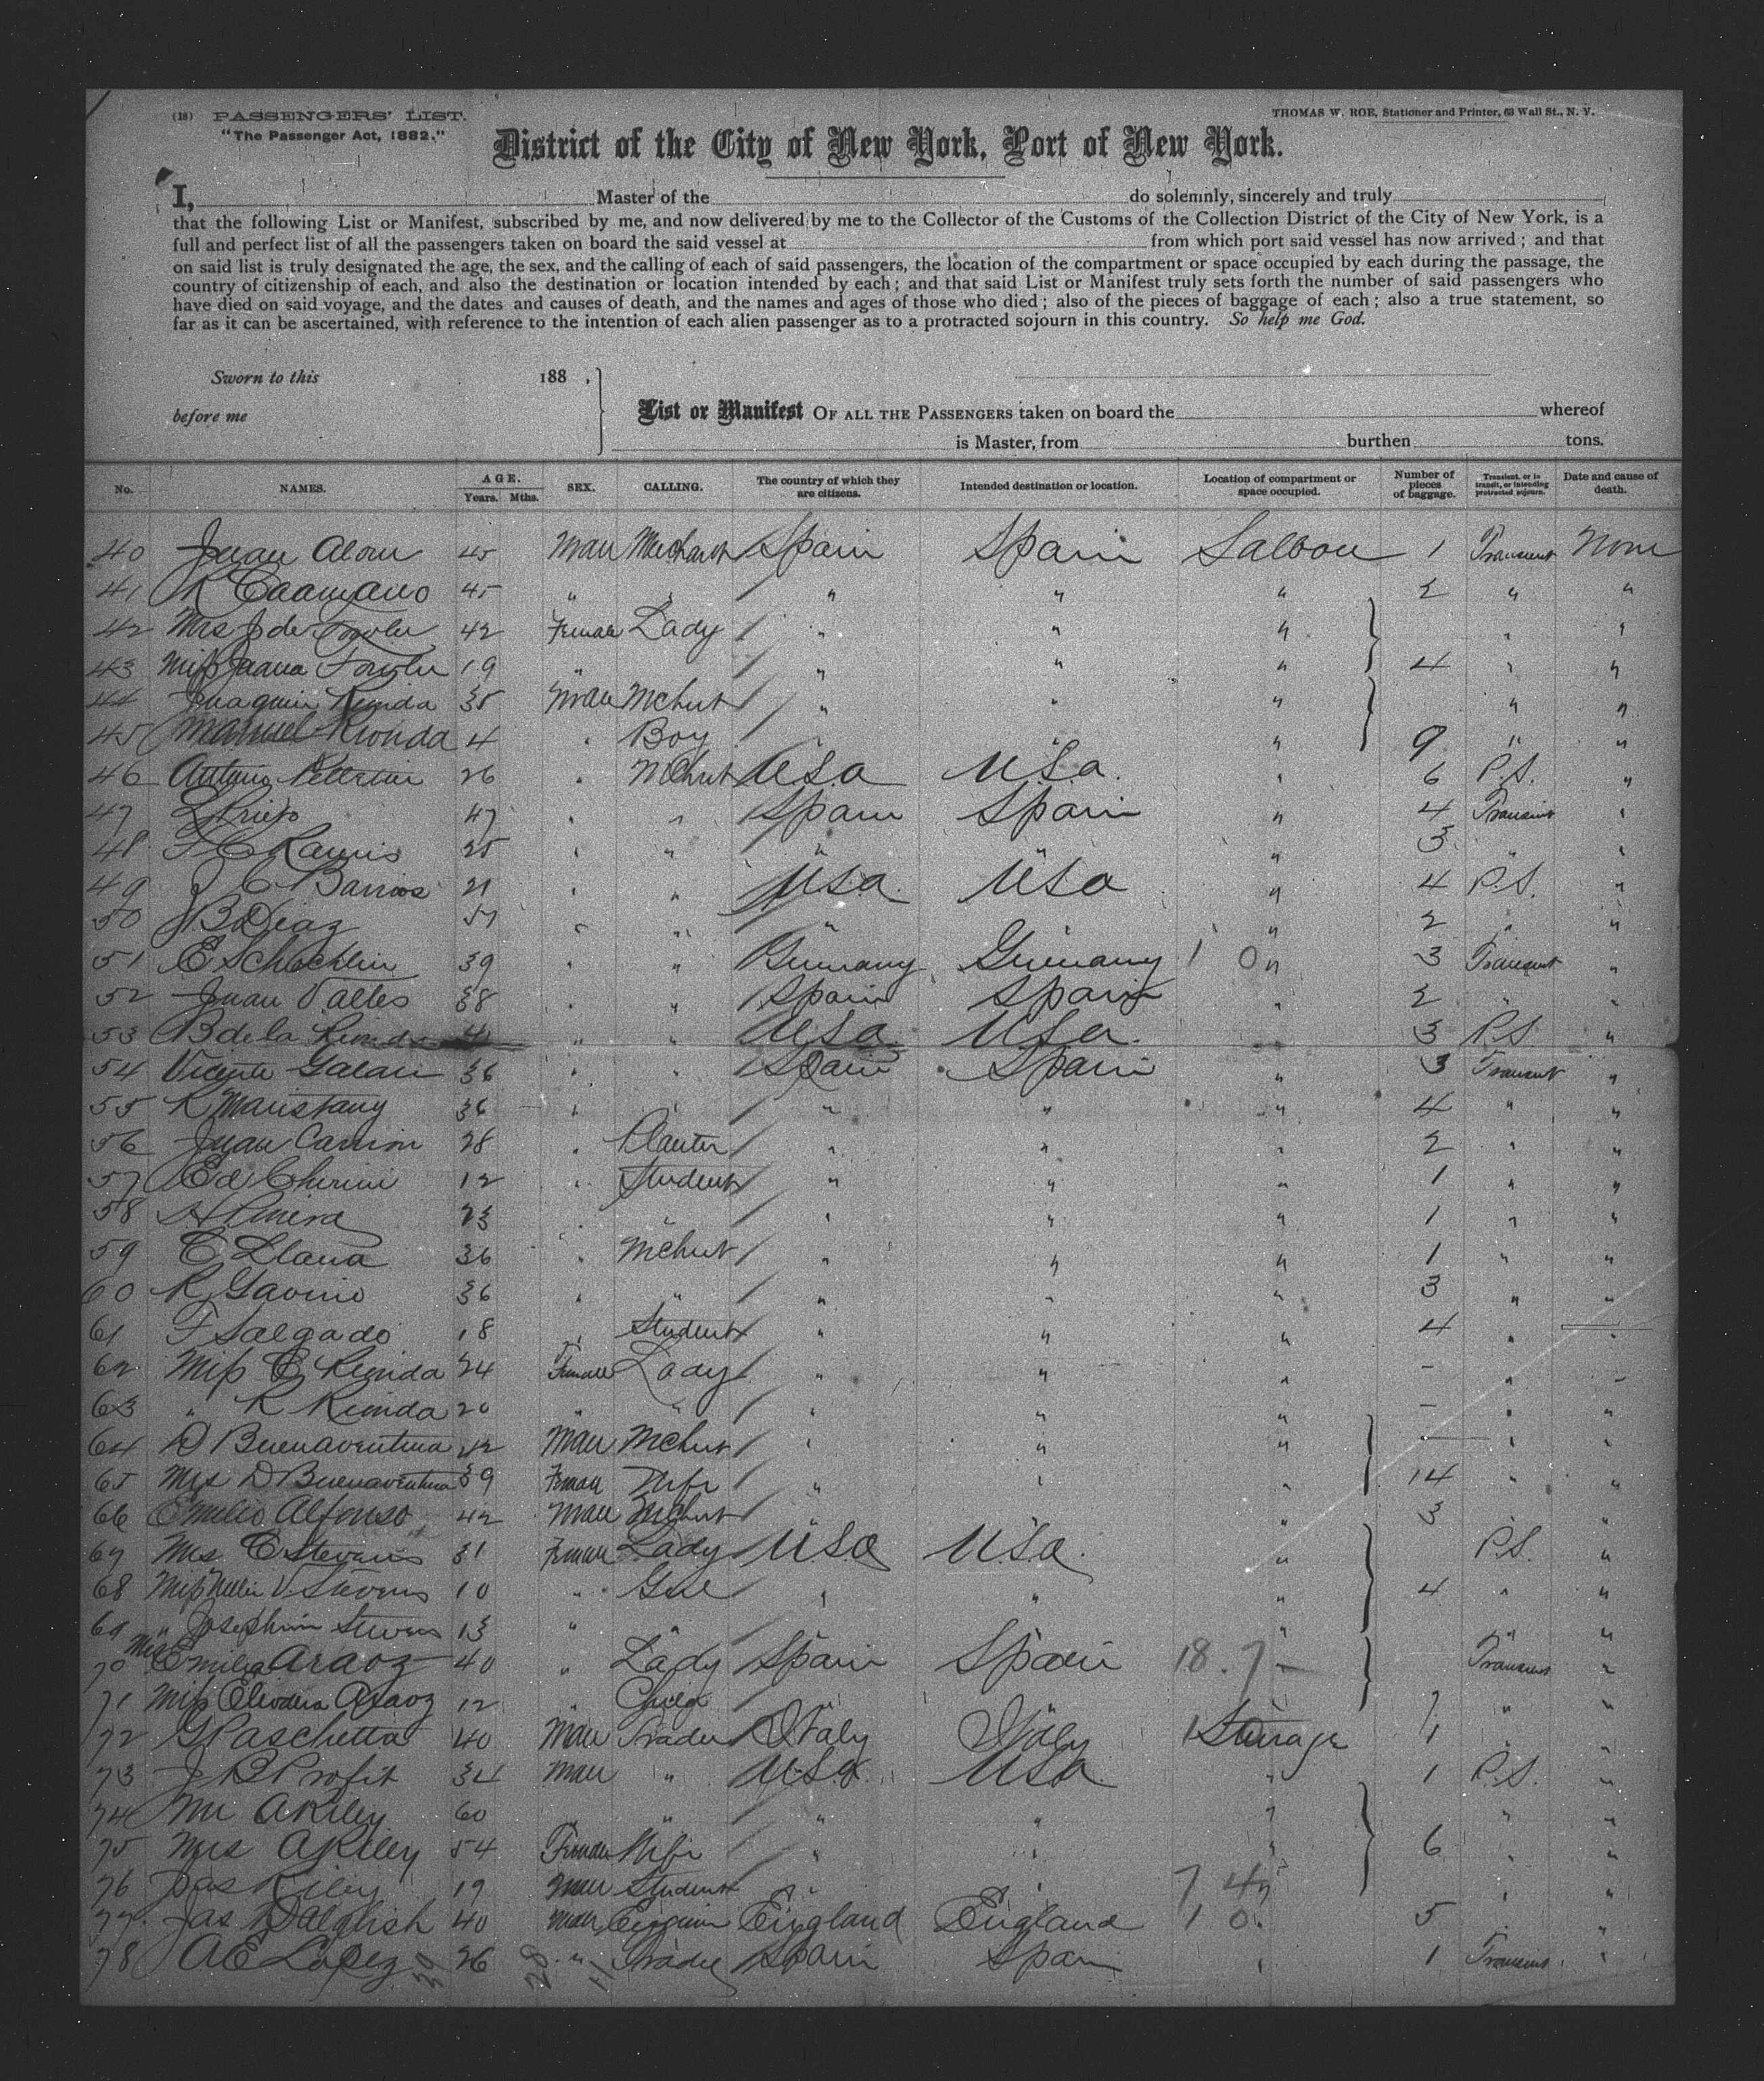 (18) PASSENGERS' LIST.
"The Passenger Act, 1882."
THOMAS W. ROE, Stationer and Printer, 63 Wall St., N. Y.
District of the City of New York, Port of New York.
I, Master of the do solemnly, sincerely and truly
that the following List or Manifest, subscribed by me, and now delivered by me to the Collector of the Customs of the Collection District of the City of New York, is a
full and perfect list of all the passengers taken on board the said vessel at from which port said vessel has now arrived; and that
on said list is truly designated the age, the sex, and the calling of each of said passengers, the location of the compartment or space occupied by each during the passage, the
country of citizenship of each, and also the destination or location intended by each; and that said List or Manifest truly sets forth the number of said passengers who
have died on said voyage, and the dates and causes of death, and the names and ages of those who died; also of the pieces of baggage of each; also a true statement, so
far as it can be ascertained, with reference to the intention of each alien passenger as to a protracted sojourn in this country. So help me God.
Sworn to this 188 ,
before me
List or Manifest OF ALL THE PASSENGERS taken on board the whereof
is Master, from burthen tons.
No. NAMES. AGE. Years. Mths. SEX. CALLING. The country of which they are citizens. Intended destination or location. Location of compartment or space occupied. Number of pieces of baggage. Transient, or in transit, or intending protracted sojourn. Date and cause of death.
40 Juan 45 Man Merchant Spain Spain Saloon 1 Transient None
41 R Caamano 45 " " " " " 2 " "
42 Mrs J de 42 Female Lady " " " " "
43 Miss Juana 19 " " " " 4 " "
44 Joaquin Rionda 35 Man Mchnt " " " " "
45 Manuel Rionda 4 " Boy " " " 9 " "
46 Antonio 26 " Mchnt USA U.S.A. " 6 P.S. "
47 Prieto 47 " " Spain Spain " 4 Transient "
48 25 " " " " " 3 " "
49 J C Barrios 21 " " USA USA " 4 P.S. "
50 J B Diaz " " " 2 " "
51 E Schechlin 39 " " Germany Germany 1 0 " 3 Transient "
52 Juan Valles 38 " " Spain Spain " 2 " "
53 B de la Rionda " " USA USA 3 P.S "
54 Vicente Galan 36 " " Spain Spain " 3 Transient "
55 R Maristany 36 " " " " " 4 " "
56 Juan Carrion 28 " Planter " " " 2 " "
57 Ed Cherini 12 " Student " " " 1 " "
58 23 " " " " " 1 " "
59 C Llana 36 " Mchnt " " " 1 " "
60 R Gavino 36 " " " " " 3 " "
61 F Salgado 18 " Student " " " 4 " "
62 Miss C Rionda 24 Female Lady " " " - " -
63 " R Rionda 20 " " " " " - " "
64 D Buenaventura 42 Man Mchnt " " " - " "
65 Mrs D Buenaventura 39 Female Wife " " " 14 " "
66 Emilio Alfonso 42 Man Mchnt " 3 "
67 Mrs C Stevens 31 Female Lady USA USA. " P.S. "
68 Miss Nellie V. Stevens 10 " Girl " " " 4 " "
69 " Josephine Stevens 13 " " " " " " "
70 Mrs Emilia Araoz 40 " Lady Spain Spain 18. 7 - Transient "
71 Miss Araoz 12 " Child 7 " "
72 G Paschetta 40 Man Trader Italy Italy 1 Steerage 1 " "
73 J B Profit 34 Man " USA. USA. " 1 P.S. "
74 Mr A Riley 60 " " " " " "
75 Mrs A Riley 54 Female Wife " " " 6 " "
76 Jas Riley 19 Man Student " " 7 4 " " "
77. Jas Dalglish 40 Man England England 1 0. 5 "
78 A E Lopez 26 " Trader Spain Spain " 1 Transient "
30 28 11